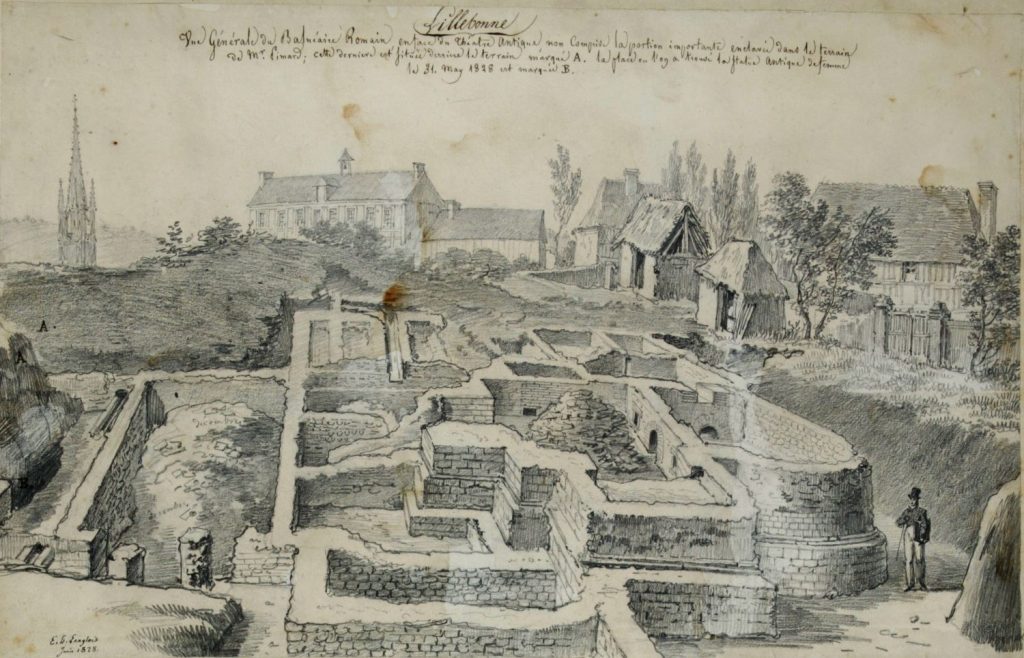 Lillebonne
Vue Générale du Balnéaire Romain en face du Théatre Antique non Comprise la portion importante enclavée dans le terrain
de Mr. Pinard; cette derniere est située derriere le terrain marqué A. la place où l'on a trouvé la statue Antique de femme
le 31. May 1828 est marquée B.
A.
A
B.
decombres
E. H. Langlois
Juin 1828.